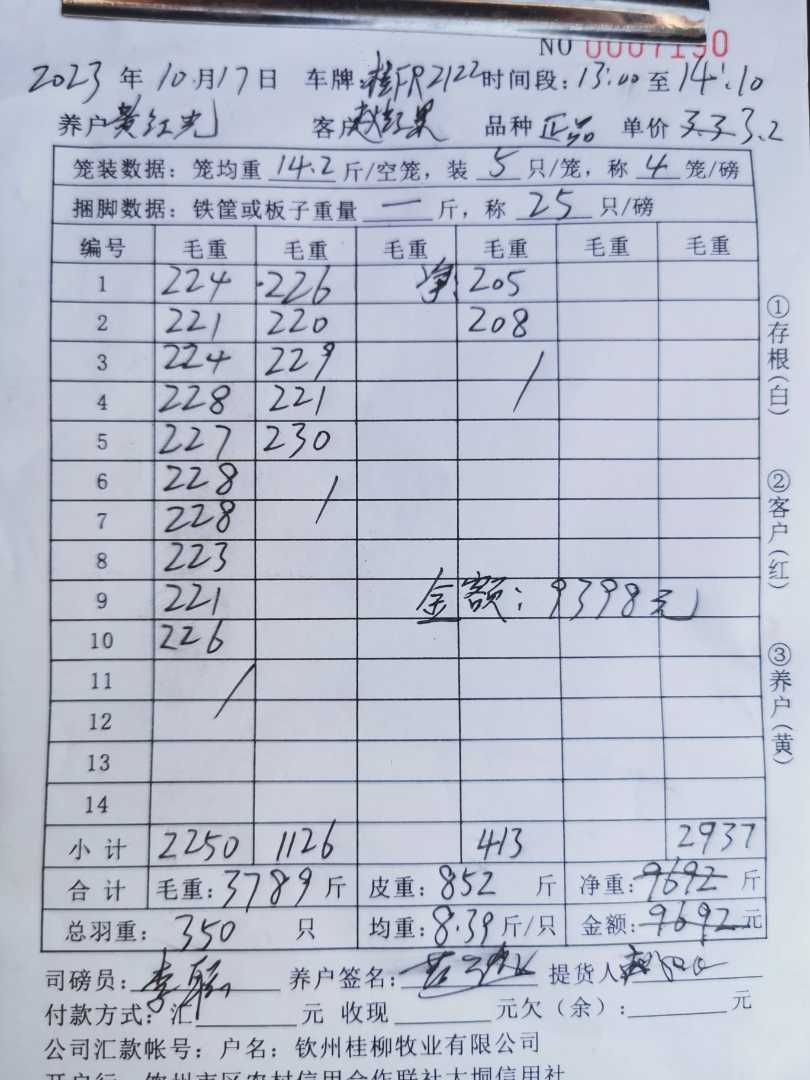 NO 0007190
2023 年 10 月 17 日 车牌:桂FR2122 时间段:13:00 至 14:10
养户 黄红光 客户 品种 正品 单价 3.2
笼装数据: 笼均重 14.2 斤/空笼, 装 5 只/笼, 称 4 笼/磅
捆脚数据: 铁筐或板子重量 一 斤, 称 25 只/磅
编号 毛重 毛重 毛重 毛重 毛重 毛重
1 224 226 净: 205
2 221 220 208
3 224 229
4 228 221
5 227 230
6 228
7 228
8 223
9 221 金额: 9398元
10 226
11
12
13
14
小计 2250 1126 413 2937
合计 毛重: 3789 斤 皮重: 852 斤 净重: 9692 斤
总羽重: 350 只 均重: 8.39 斤/只 金额: 9692 元
司磅员: 养户签名: 提货人
付款方式: 汇 元 收现 元欠(余): 元
公司汇款帐号: 户名: 钦州桂柳牧业有限公司
开户行: 钦州市区农村信用合作联社大垌信用社
①存根(白)
②客户(红)
③养户(黄)